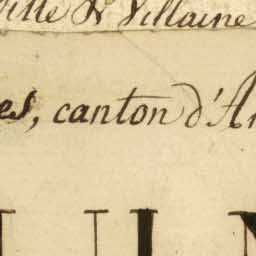 Ville & Villaine
es, canton d'Ar
UIN